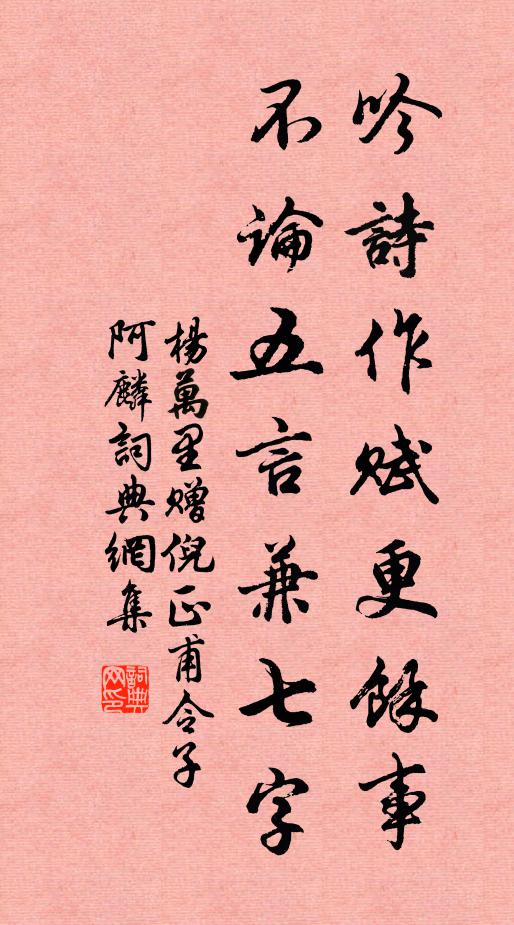 吟詩作賦更餘事
不論五言兼七字
楊萬里贈倪正甫令子
阿麟詞典網集
詞典網印